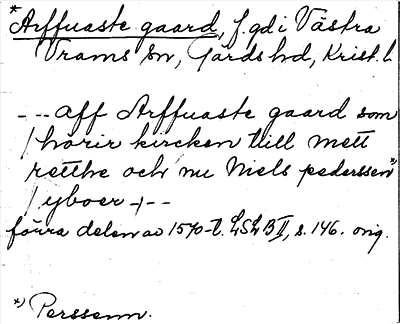 *Arffuaste gaard, f. gd i Västra
Vrams sn, Gärds hd, Krist. l.
--- aff Arffuaste gaard som
/hörir kircken till mett
retthe och nu Niels pederssen*)
/yboer ---
förra delen av 1570-t. LSLB II, s. 146. orig.
*) Perssenn.